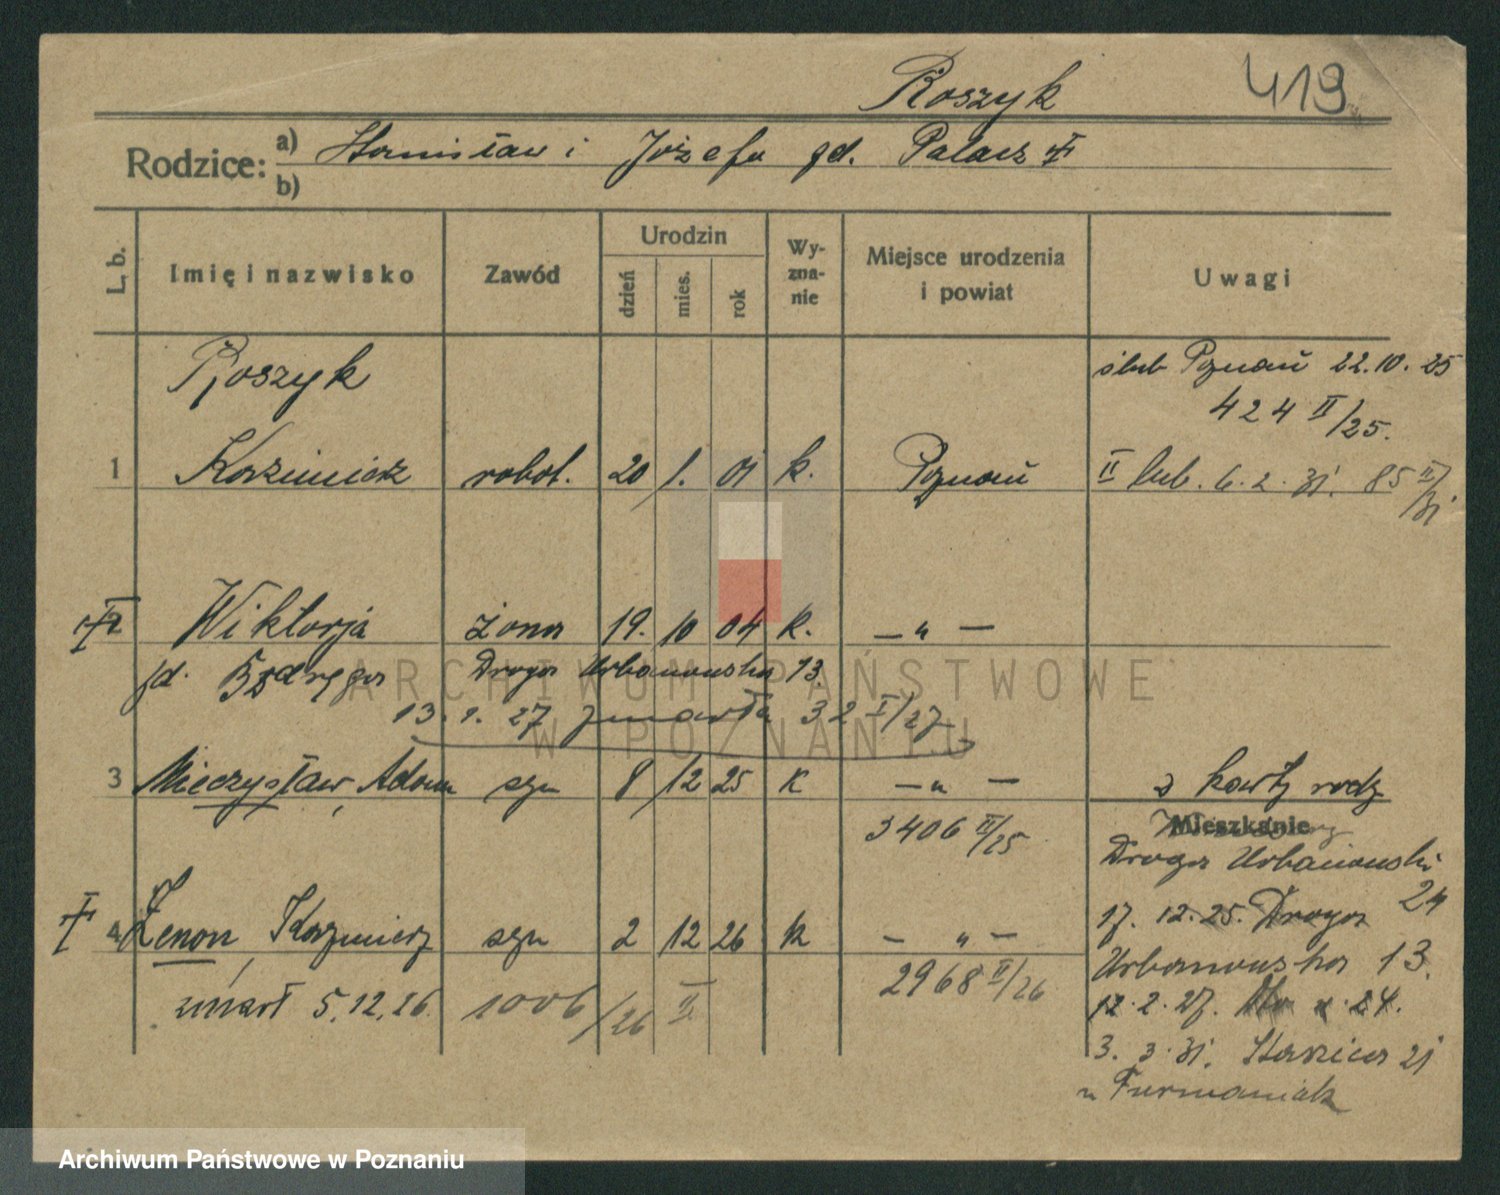 Roszyk 419
Rodzice: a) Stanisław i Józefa gd. Palacz
b)
L. b. Imię i nazwisko Zawód Urodzin dzień mies. rok Wy-zna-nie Miejsce urodzenia i powiat Uwagi
Roszyk ślub Poznań 22.10.25
424 II/25.
1 Kazimierz robot. 20 1. 01 k. Poznań II lub. 6.2.31. 85 II/31
2 Wiktorja żona 19. 10 04 k. — " —
gd. Droga Urbanowska 13.
13.1.27 zmarła 32 I/27
3 Mieczysław, Adam syn 8 12 25 k — " — z karty rodz
3406 II/25 Mieszkanie
Droga Urbanowska
24
4 Zenon, Kazimierz syn 2 12 26 k — " — 17.12.25. Droga
2968 II/26 Urbanowska 13.
zmarł 5.12.26. 1006/26 II 12.2.27. 24.
3.3.31. Staszica 21
u Furmaniak
ARCHIWUM PAŃSTWOWE
W POZNANIU
Archiwum Państwowe w Poznaniu